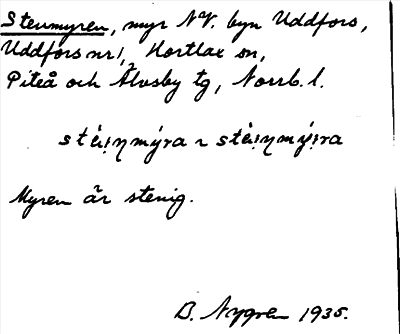 Stenmyren, myr N.V. byn Uddfors,
Uddfors nr 1, Hortlax sn,
Piteå och Älvsby tg, Norrb. l.
Myren är stenig.
B. Nygren 1935.